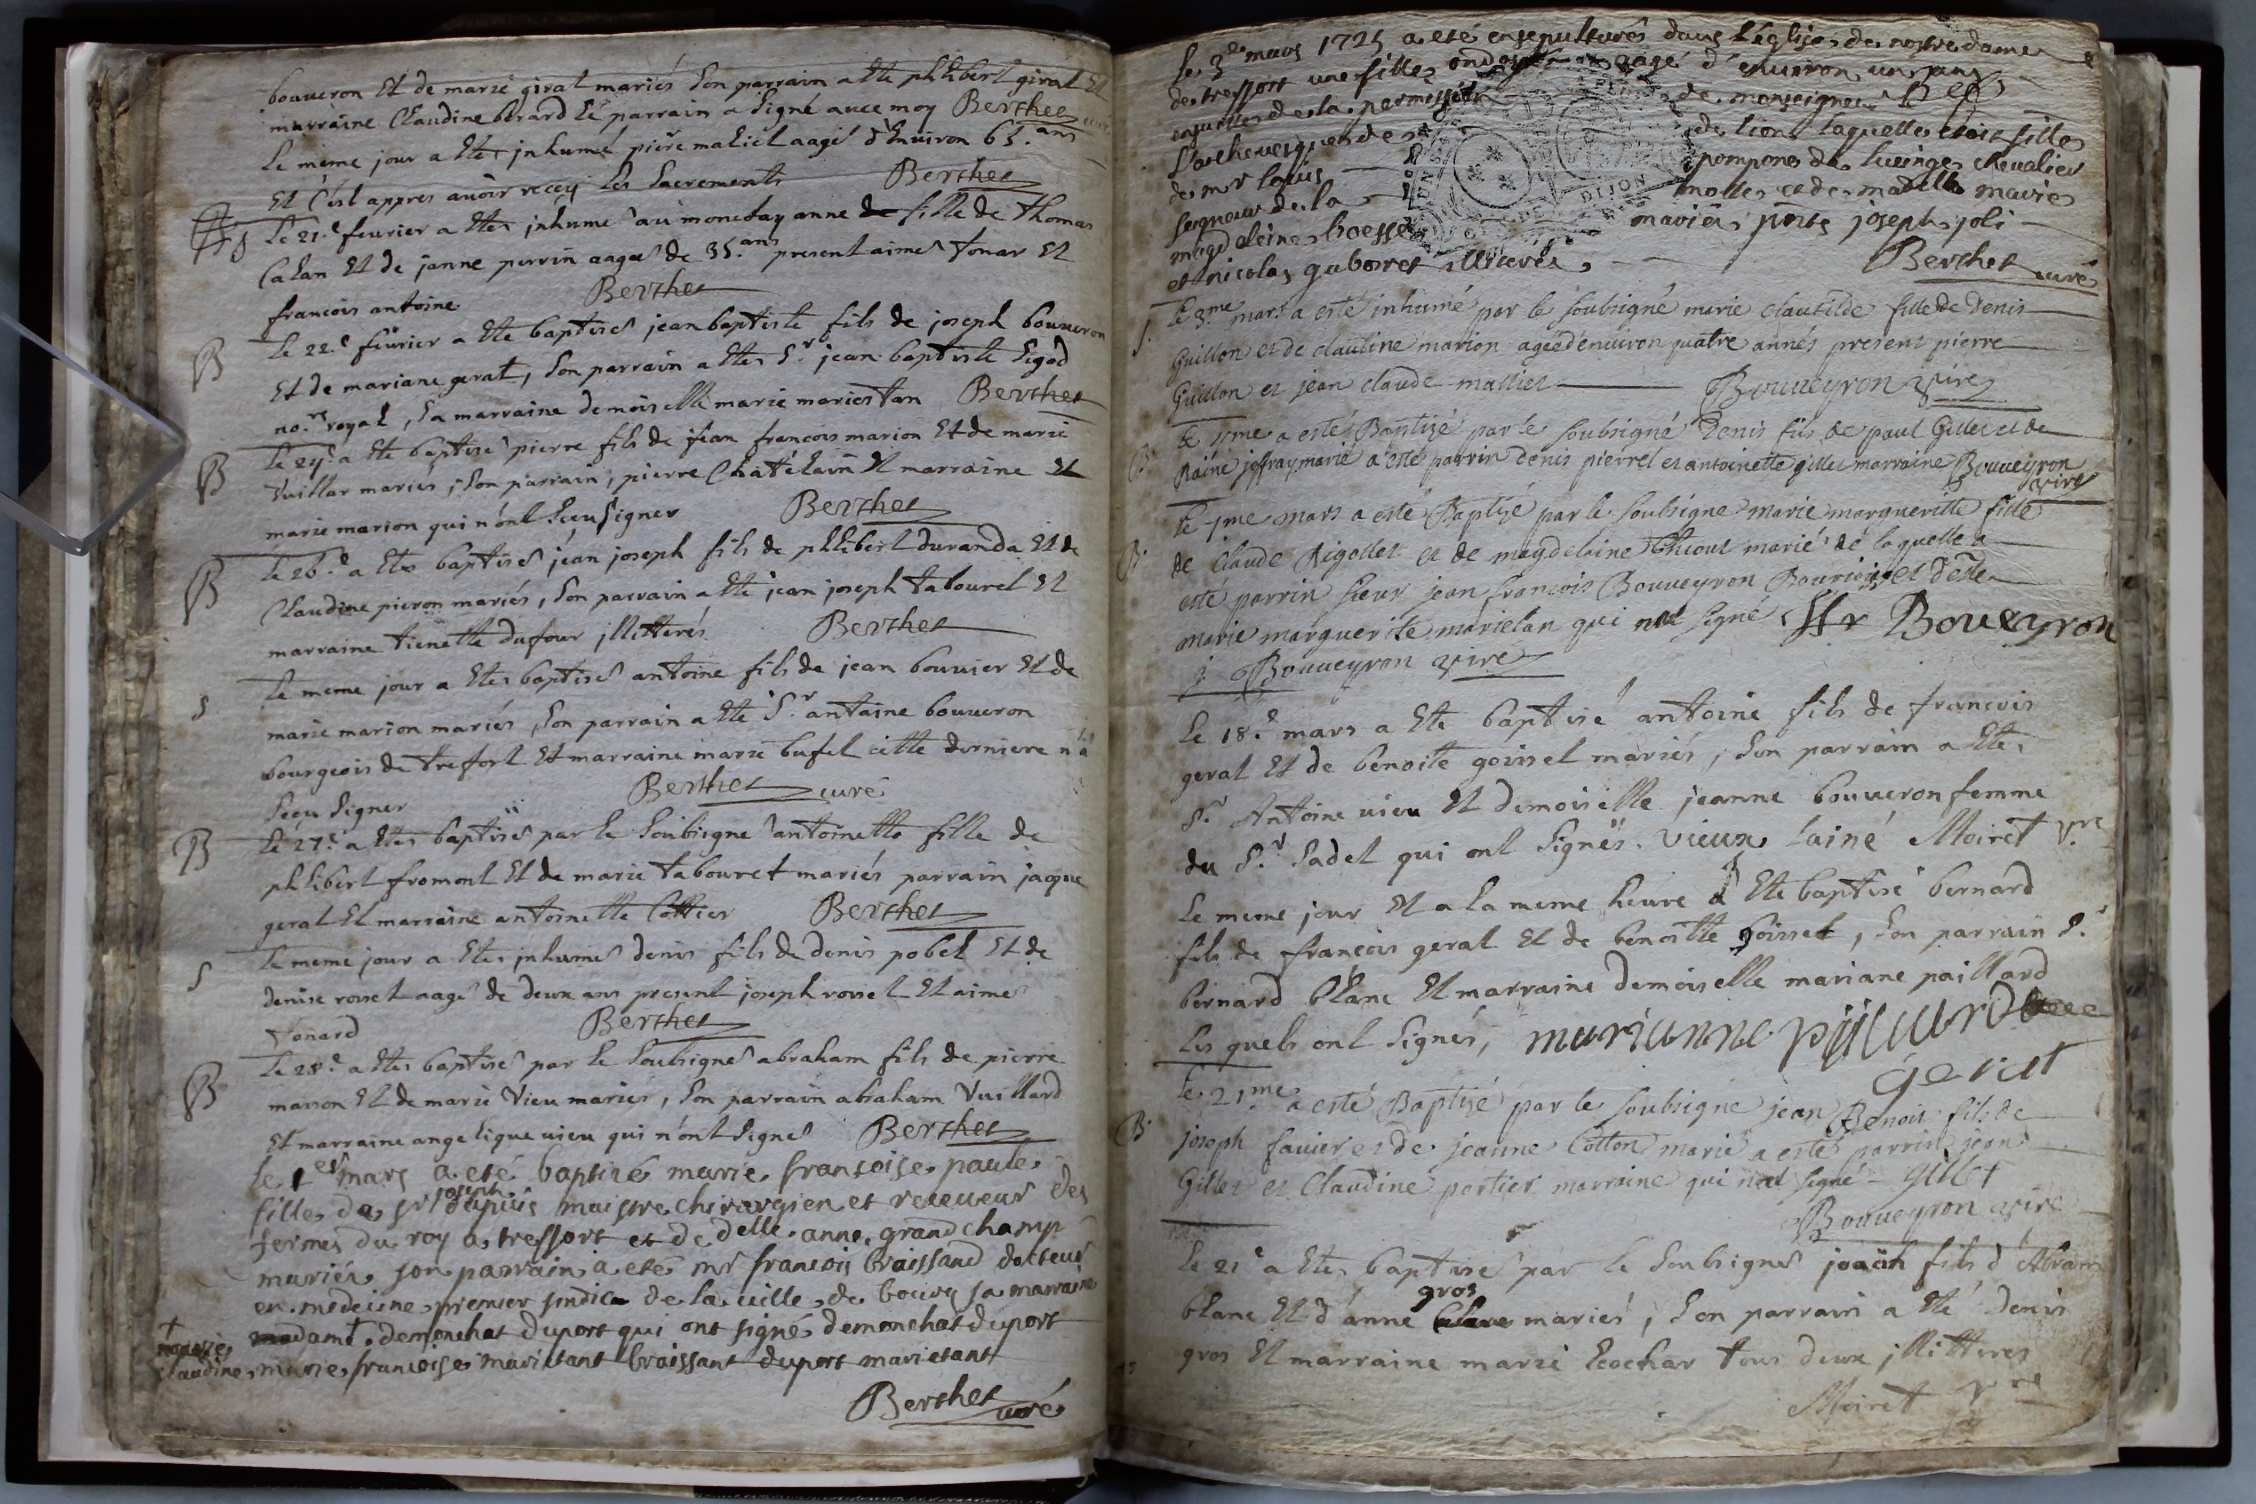 bouueron Et de marie girat mariés son parrain a Ete philibert girat Et
marraine Claudine berard le parrain a Signé auec moy Berthet curé
le meme jour a Eté inhumé piere maliet aagé d'Enuiron 65. ans
Et C'est appres auoir receu les Sacrements Berthet
S le 21.e feurier a Ete inhumé au anne fille de Thomas
Calan Et de janne perrin aagée de 35. ans present aimé tonar Et
francois antoine Berthet
B le 22.e feurier a Ete baptisé jean baptiste fils de joseph bouueron
Et de mariane gerat, Son parrain a Ete S.r jean baptiste Sigod
no.re royal, Sa marraine demoiselle marie mariestan Berthet
B le 24.e a Ete baptisé pierre fils de jean francois marion Et de marie
Vuillar mariés, Son parrain, pierre Chatelain Et marraine Et
marie marion qui n'ont Sceu Signer Berthet
B le 26.e a Ete baptisé jean joseph fils de philibert duranda Et de
Claudine pieron mariés, Son parrain a Ete jean joseph tabouret Et
marraine tienette dufour illitterés Berthet
S le meme jour a Ete baptisé antoine fils de jean bouuier Et de
marie marion mariés, Son parrain a Ete S.r antoine bouueron
bourgeois de treffort Et marraine marie bufet cette derniere n'a
Sceu Signer Berthet curé
B le 27.e a Ete baptisé par le Soubsigné antoinette fille de
philibert fromont Et de marie tabouret mariés parrain jacque
gerat Et marraine antoinette Cottier Berthet
S le meme jour a Ete inhumé denis fils de denis pobel Et de
denise rosset aagé de deux ans present joseph rosset Et aimé
tonard Berthet
B le 28.e a Ete baptisé par le Soubsigné abraham fils de pierre
marion Et de marie Vieu mariés, Son parrain abraham Vuillard
Et marraine angelique uieu qui n'ont Signé Berthet
le 1er mars a eté baptizé marie françoise paule
joseph
fille de sr dupuis maistre chirurgien et receueur des
fermes du roy a treffort et de delle anne grandchamp
mariés son parrain a eté mr françois braissand docteur
en medecine premier sindic de la uille de bourg sa marraine
madame demonchat duport qui ont signés demonchat duport
claudine marie françoise marietant braissant duport marietant
Berthet curé
le 3e mars 1725 a eté ensepulturés dans l'église de nostre dame
de treffort une fille ondoyée aagé d'enuiron un jour
ensuitte de la permission de monseigneur
l'archeuesque de de lion laquelle etoit fille
de mr louis pompone de luuinge cheualier
seigneur de la molle et de madelle marie
magdeleine boesse mariés pnts joseph joli
et nicolas guborret illiterés, Berthet curé
S. le 3.me mars a esté inhumé par le soubsigné marie clautilde fille de Denis
Guillon et de claudine marion ageé d'enuiron quatre annés present pierre
Guillon et jean claude malliet Bouueyron vire
B. le a esté Baptizé par le soubsigné Denis fils de paul Gillet et de
Raine jeffray marié a esté parrin denis pierrel et antoinette gillet marraine Bouueyron
vire
B. le mars a esté Baptizé par le soubsigné marie margueritte fille
de Claude Rigollet et de magdelaine Thiout marié de laquelle a
esté parrin sieur jean francois Bouueyron Bourjois et delle
marie marguerite marietan qui not signé Jfr Boueyron
j Bouueyron vire
le 18.e mars a Ete baptisé antoine fils de francois
gerat Et de benoite goisset mariés, Son parrain a Ete
S.r Antoine uieu Et demoiselle jeanne bouueron femme
du S.r Sadet qui ont Signés. Vieux lainé Moiret v.re
le meme jour Et a la meme heure a Ete baptisé bernard
fils de francois gerat Et de benoitte goisset, Son parrain S.r
bernard blanc Et marraine demoiselle mariane paillard
les quels ont Signés,
gerict
B. le 21.me a esté Baptizé par le soubsigné jean Benoit fils de
joseph fauier et de jeanne Cotton marié a esté parrin jean
Gillet et Claudine portier marraine qui not signé Gillet
Bouueyron vire
le 21e a Ete baptisé par le Soubsigné fils d'Abram
gros
blanc Et d'anne mariés, Son parrain a Eté denis
gros Et marraine marie Ecochar tous deux illitterés
Moiret v.re